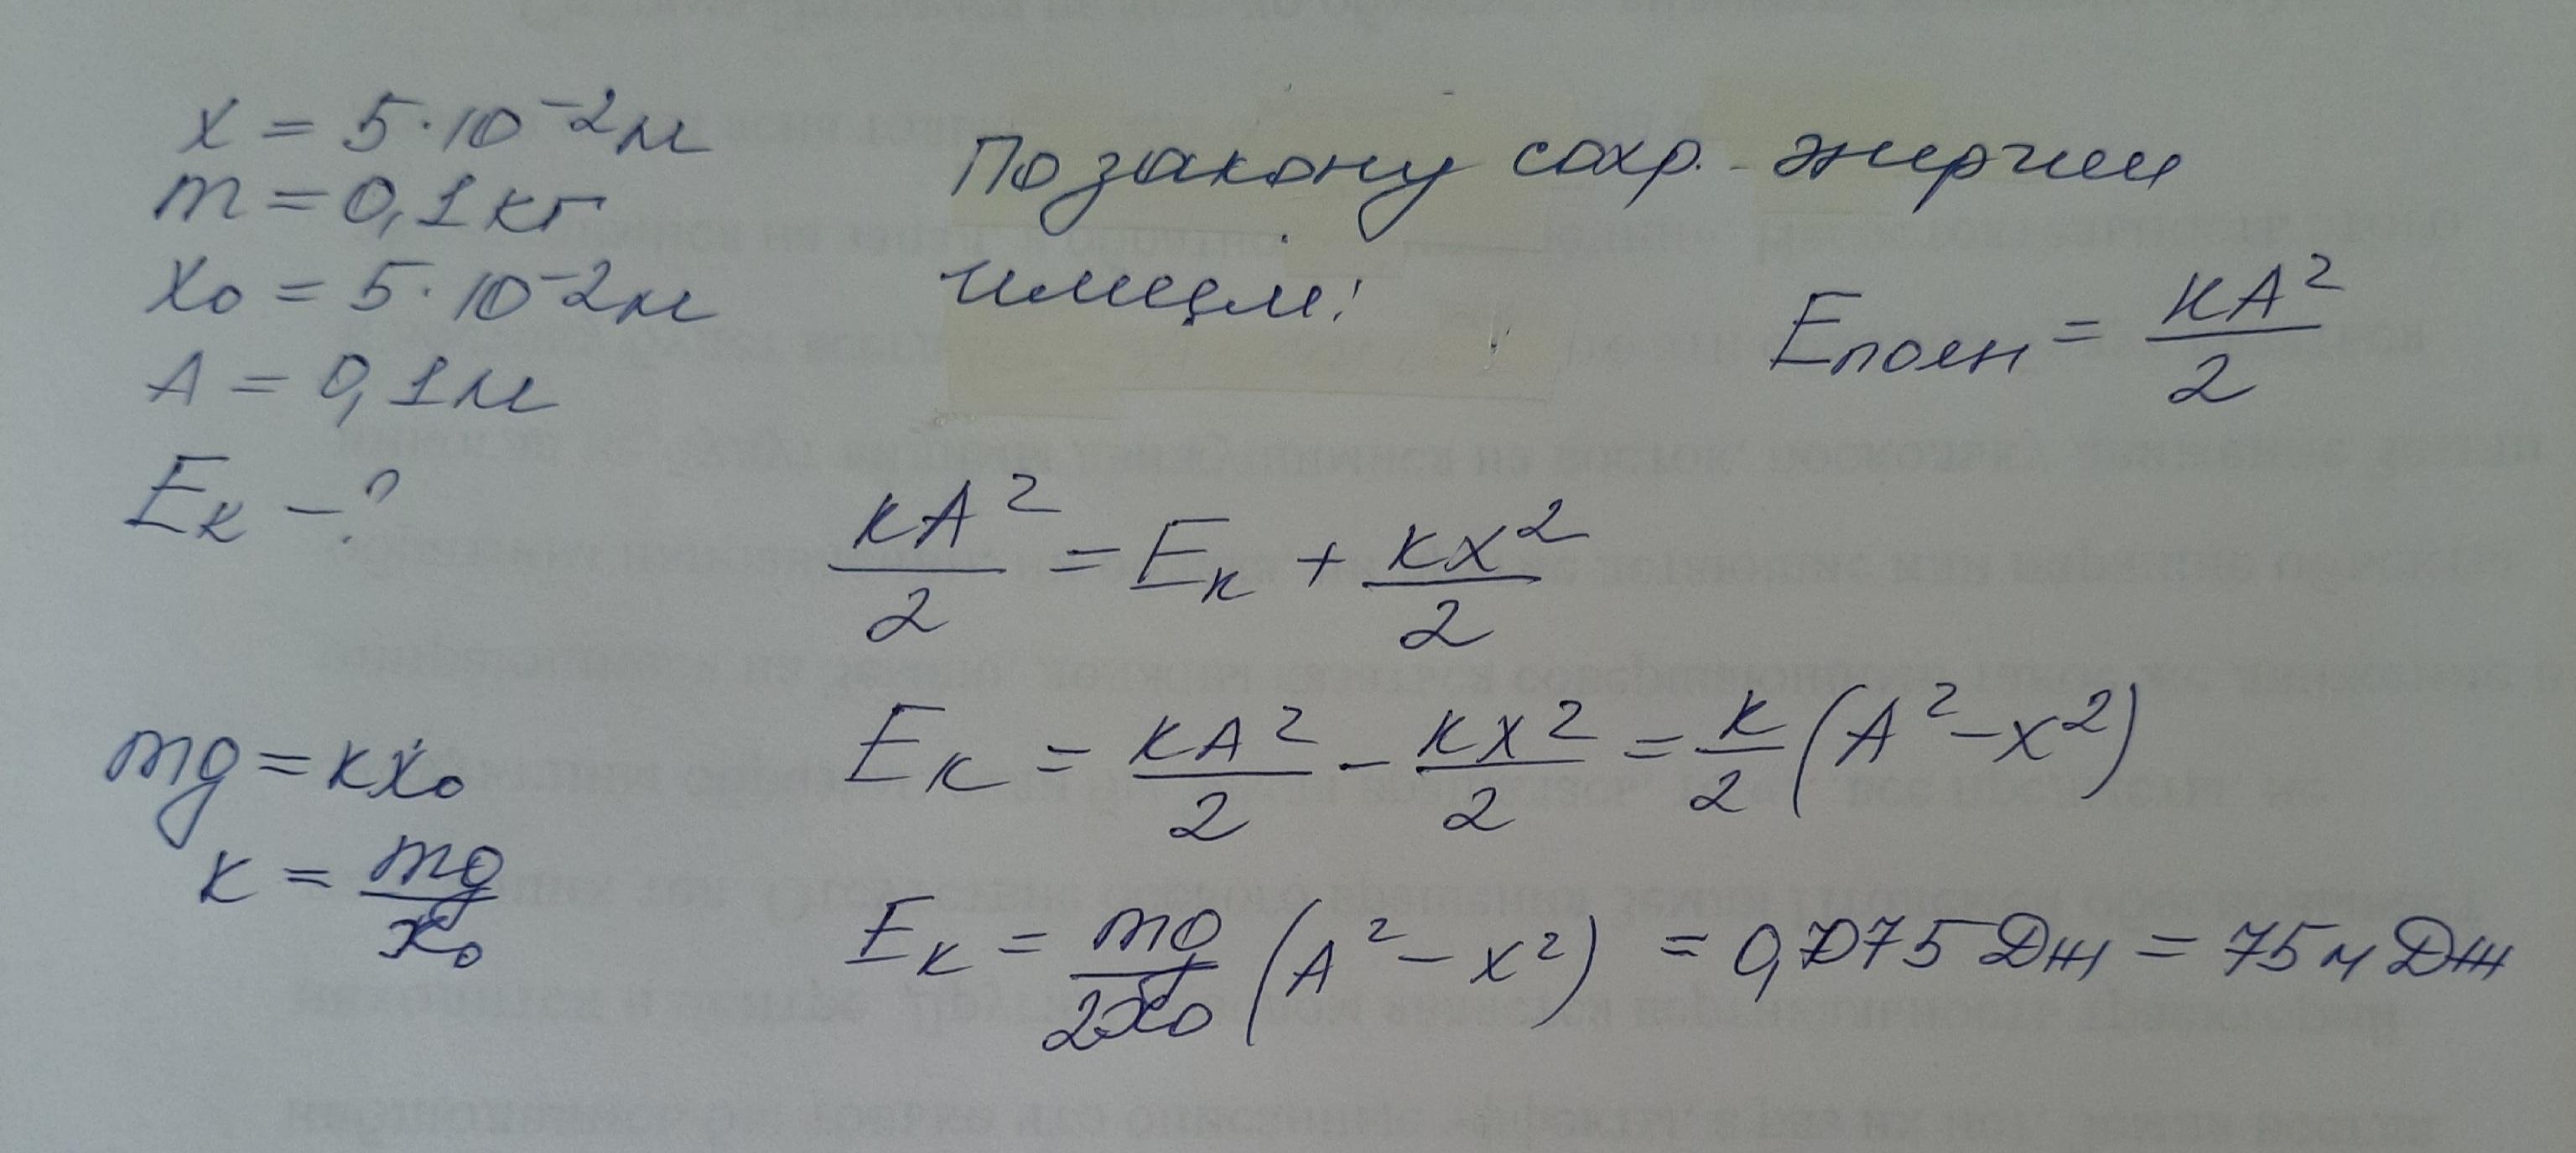 x = 5·10⁻² м
m = 0,1 кг
x₀ = 5·10⁻² м
A = 0,1 м
Eк – ?
mg = kx₀
k = mg/x₀
По закону сохр. энергии
имеем:
Eполн = kA²/2
kA²/2 = Eк + kx²/2
Eк = kA²/2 - kx²/2 = k/2 (A² - x²)
Eк = mg/2x₀ (A² - x²) = 0,075 Дж = 75 мДж